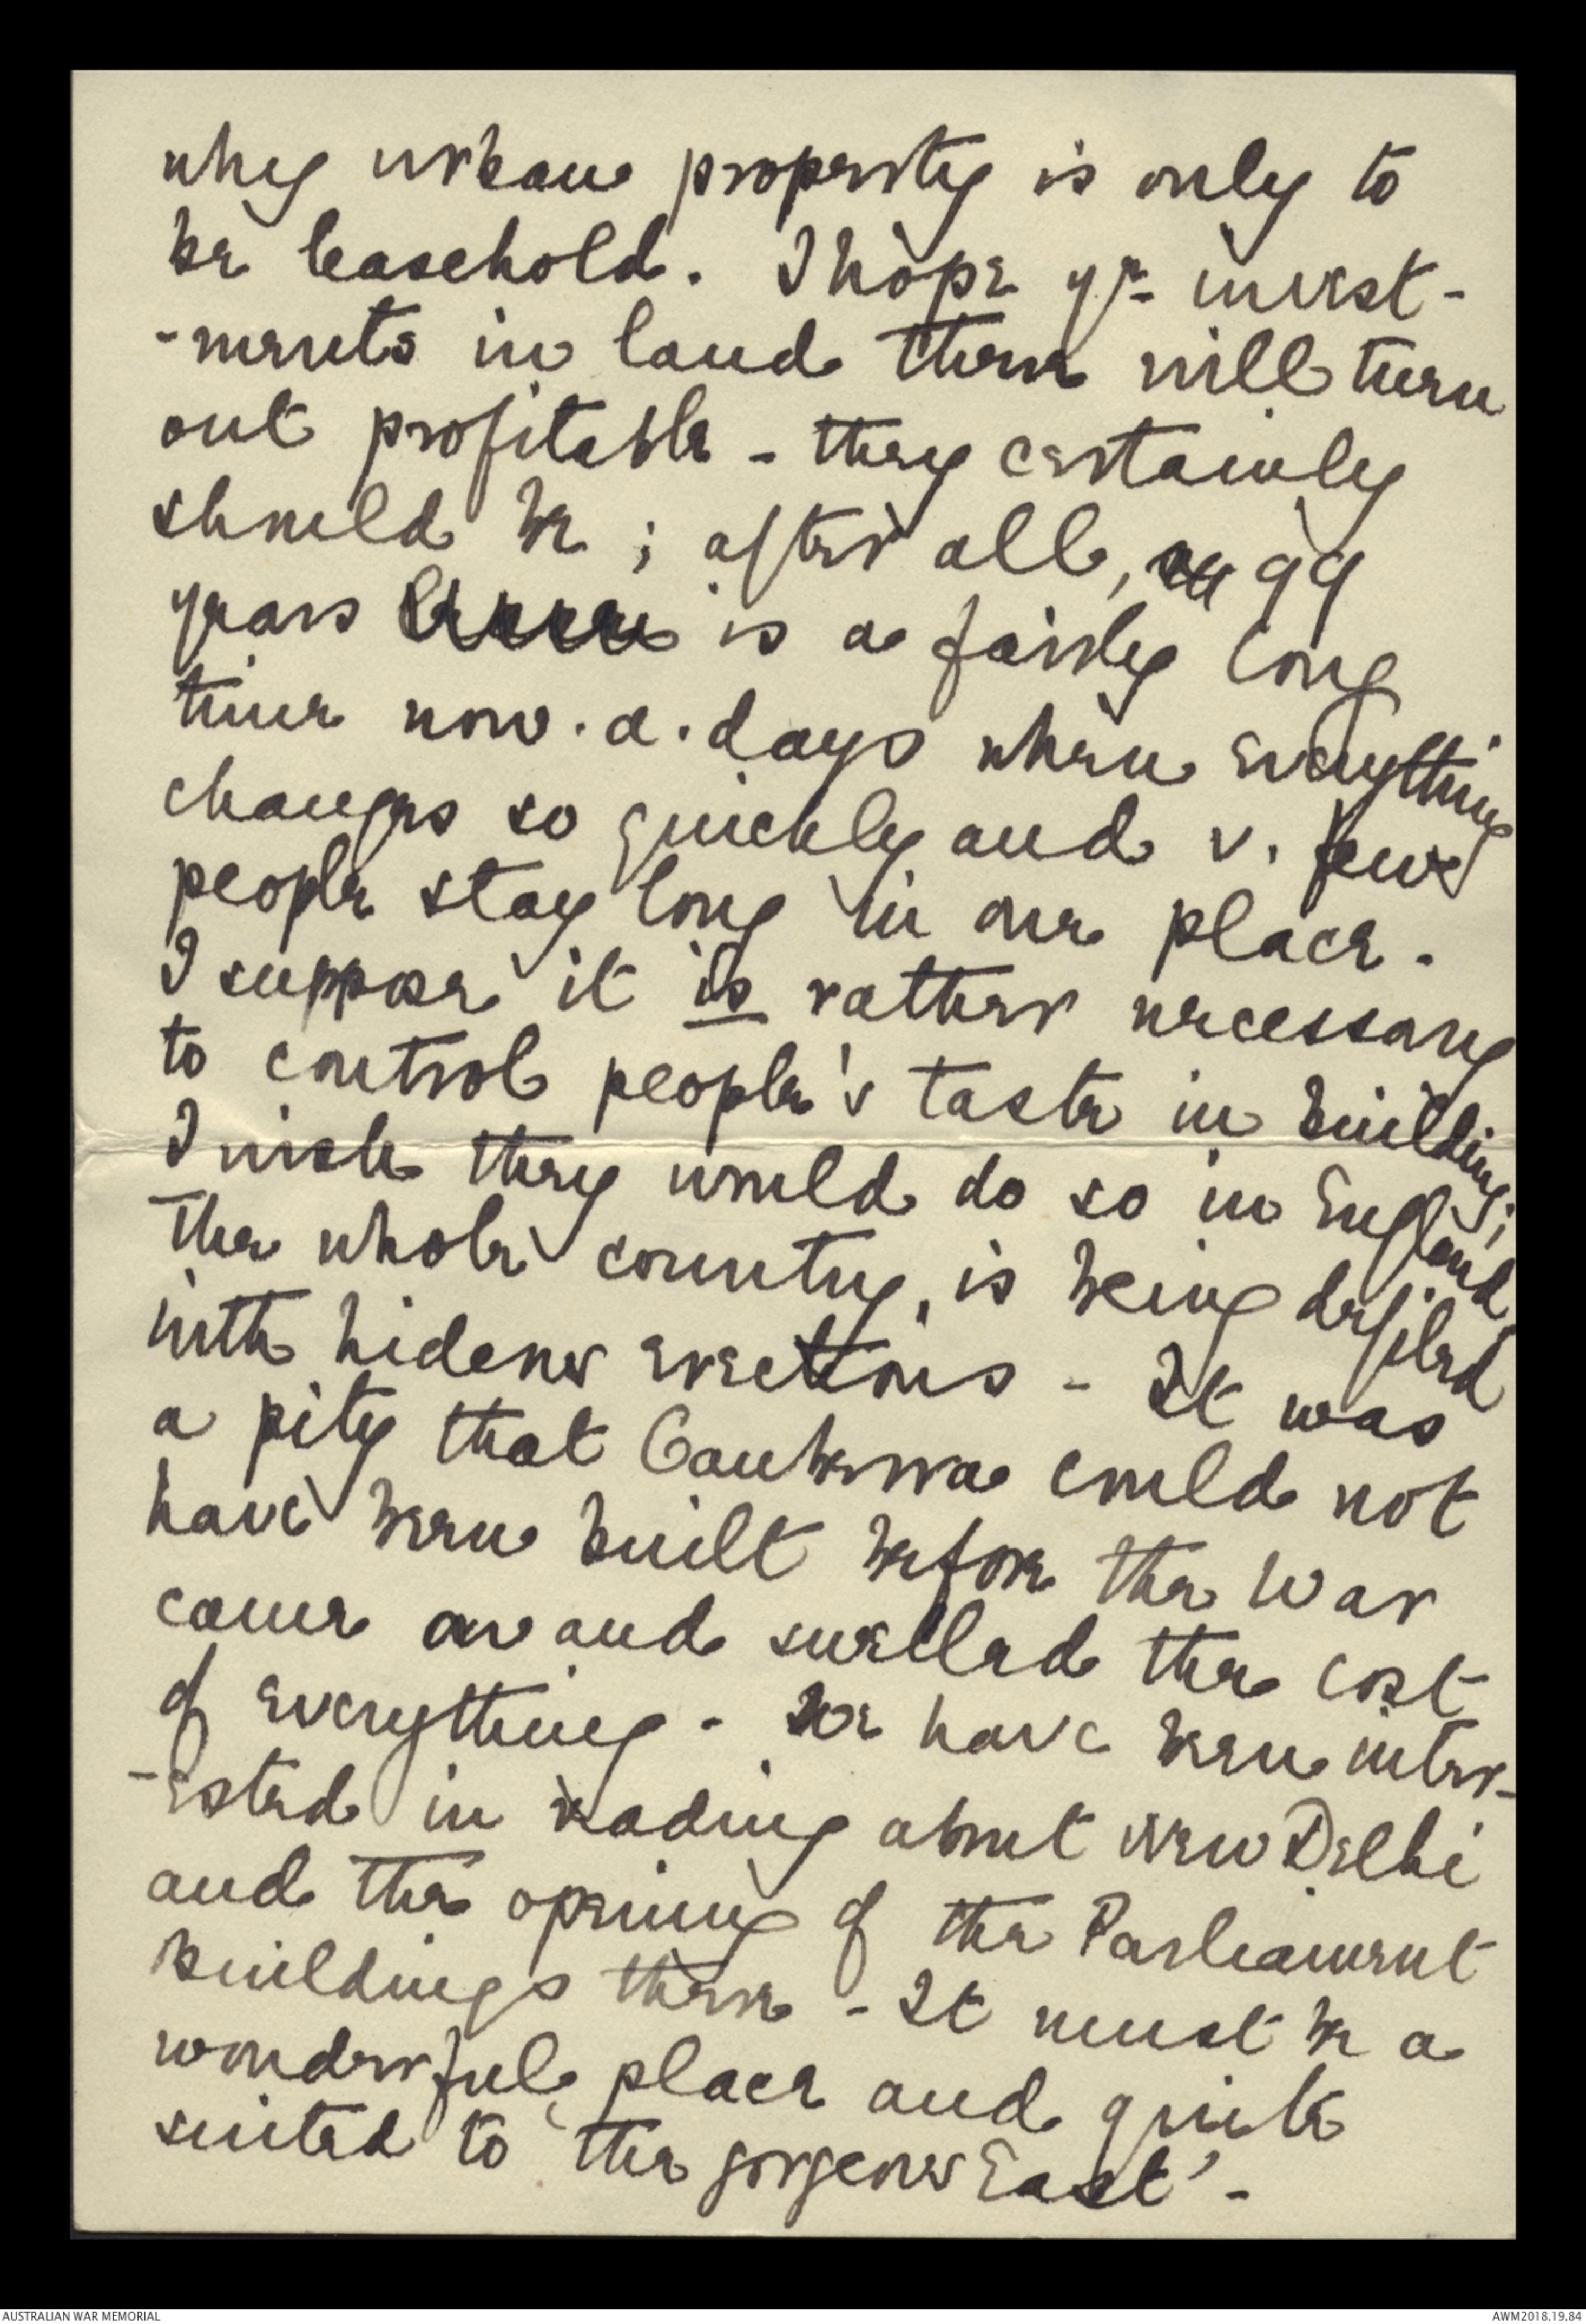 why urban property is only to
be leasehold. I hope yr. invest-
-ments in land there will turn
out profitable - they certainly
should be; after all, 99
years is a fairly long
time now.a.days when everything
changes so quickly and v. few
people stay long in one place.
I suppose it is rather necessary
to control people's taste in building;
I wish they would do so in England,
the whole country, is being defiled
with hideous erections - It was
a pity that Canberra could not
have been built before the War
came on and swelled the cost
of everything - We have been inter-
-ested in reading about New Delhi
and the opening of the Parliament
buildings there - It must be a
wonderful place and quite
suited to 'the gorgeous East' -
AUSTRALIAN WAR MEMORIAL
AWM2018.19.84